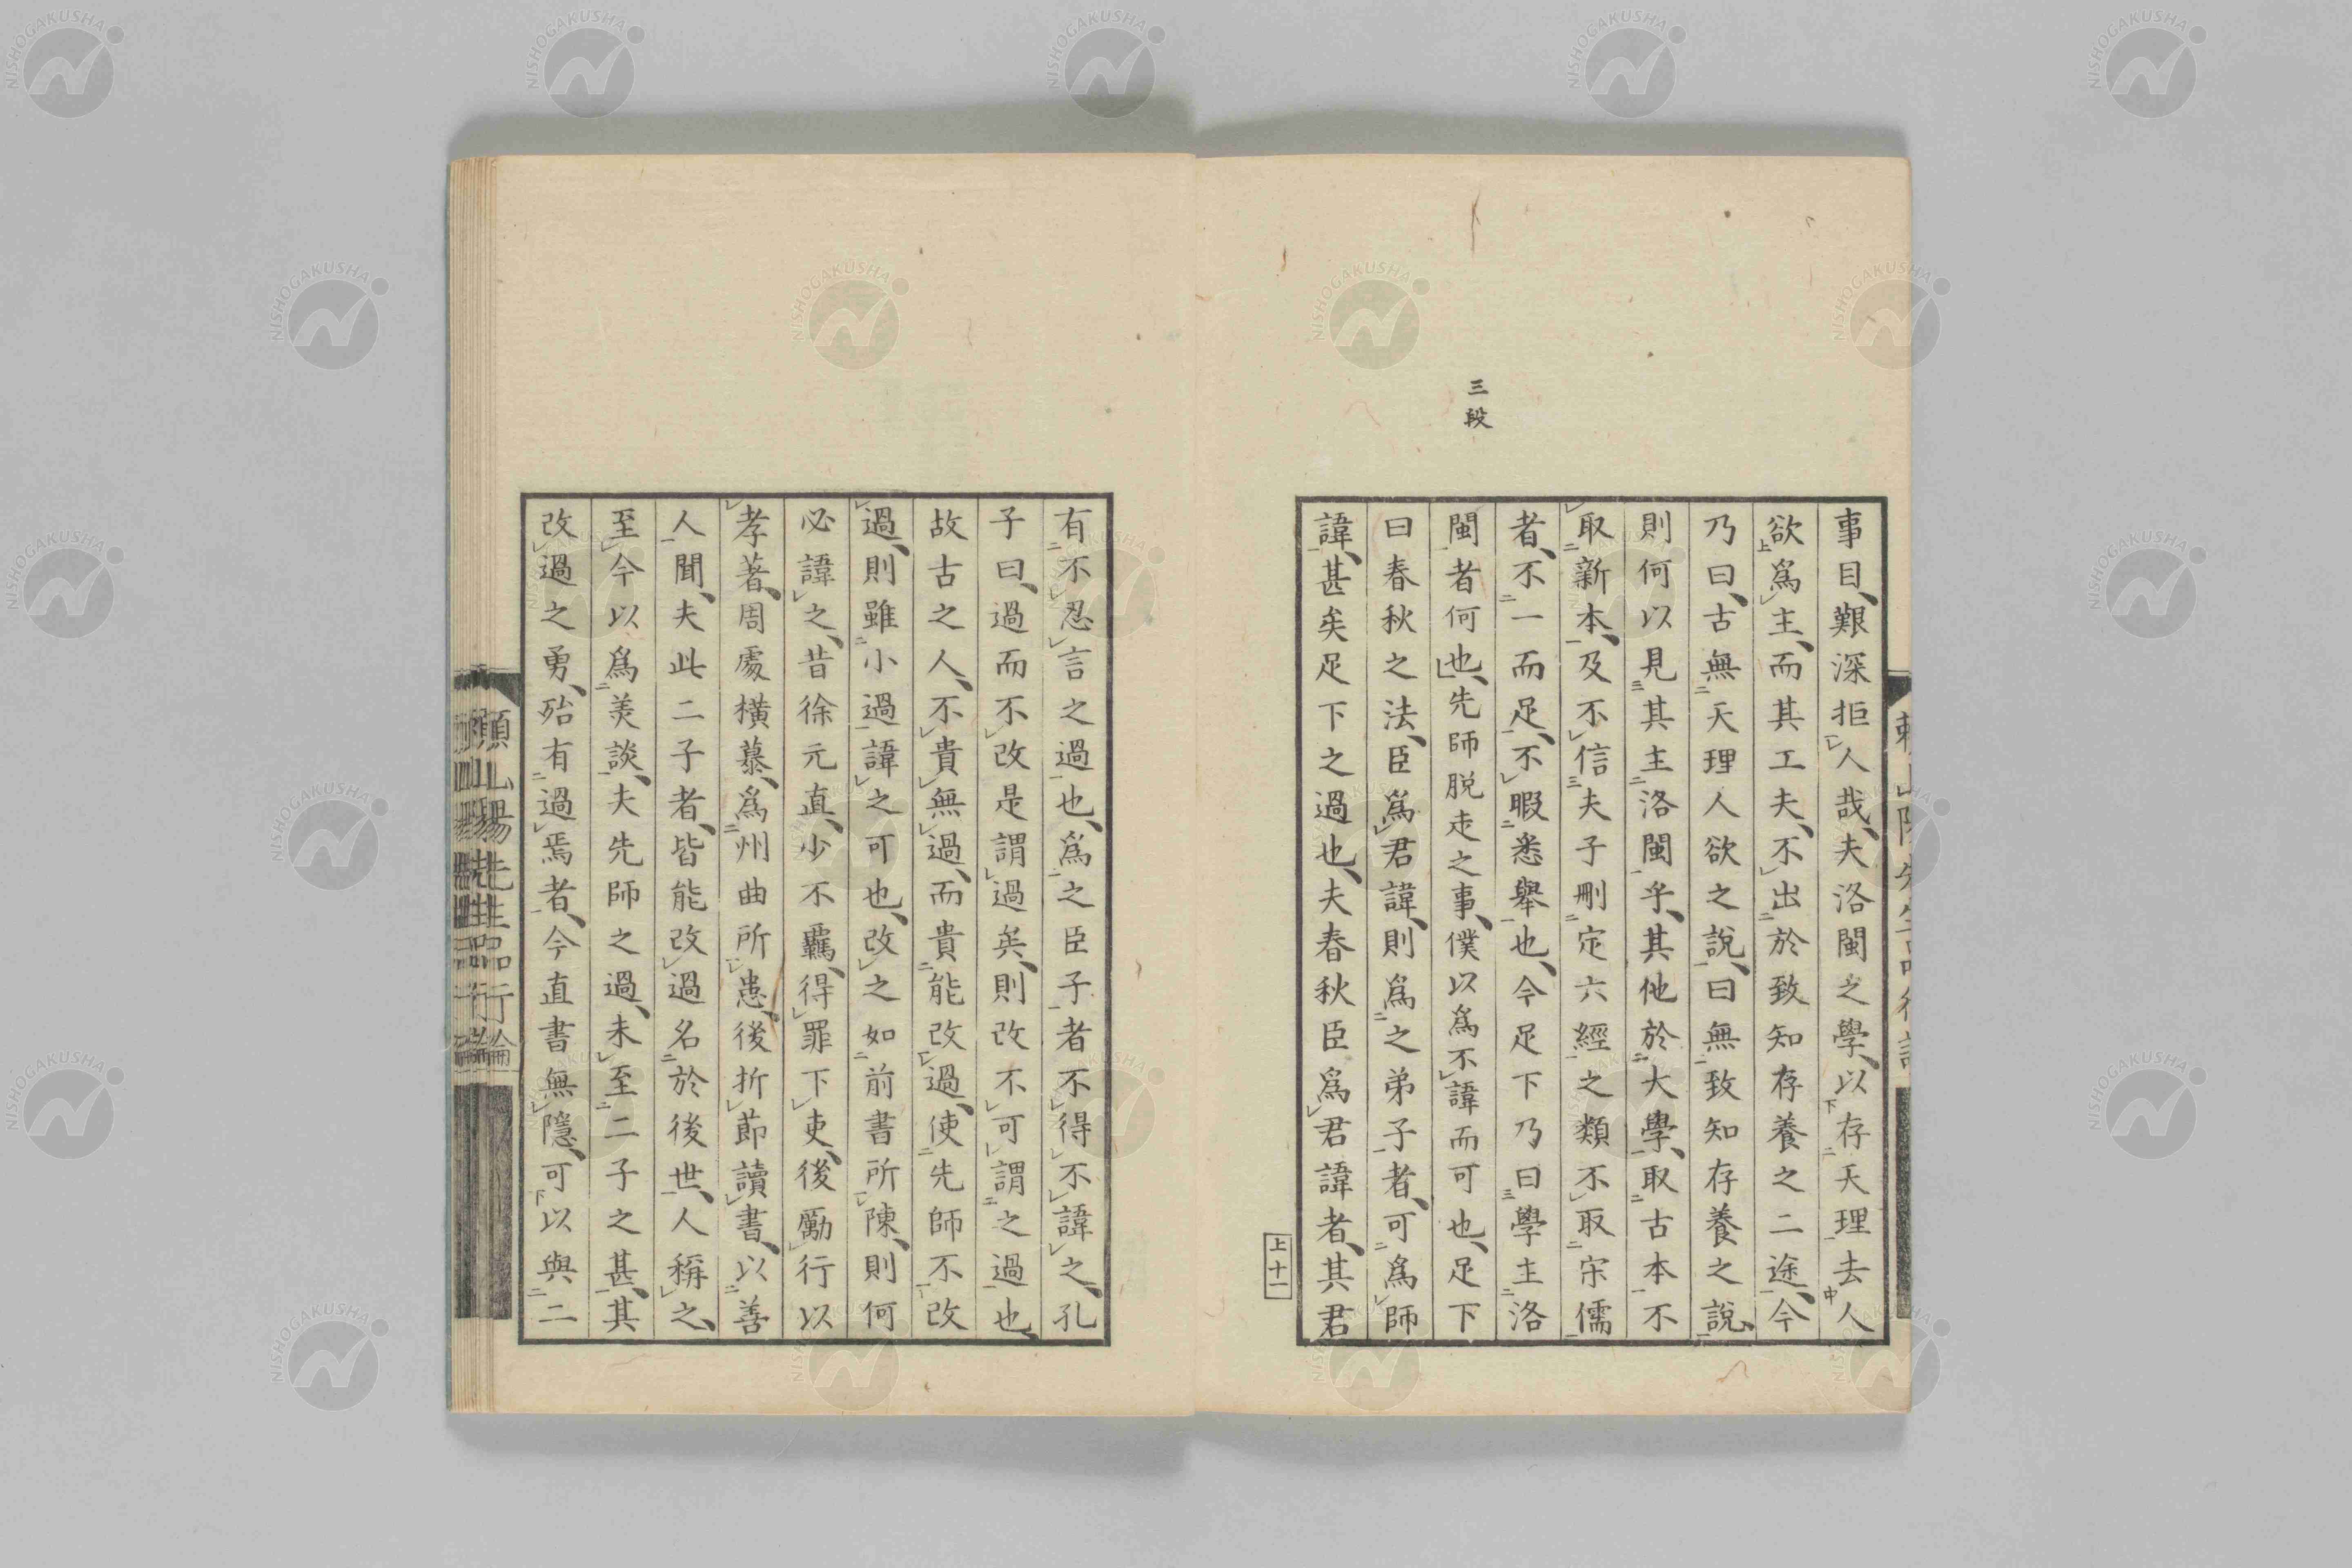 三段
事目、艱深拒人哉、夫洛閩之學、以存天理去人
欲爲主、而其工夫、不出於致知存養之二途、今
乃曰、古無天理人欲之說、曰無致知存養之說、
則何以見其主洛閩乎、其他於大學、取古本不
取新本、及不信夫子刪定六經之類不取宋儒
者、不一而足、不暇悉舉也、今足下乃曰學主洛
閩者何也、先師脱走之事、僕以爲不諱而可也、足下
曰春秋之法、臣爲君諱、則爲之弟子者、可爲師
諱、甚矣足下之過也、夫春秋臣爲君諱者、其君
上十一
有不忍言之過也、爲之臣子者不得不諱之、孔
子曰、過而不改是謂過矣、則改不可謂之過也、
故古之人、不貴無過、而貴能改過、使先師不改
過、則雖小過諱之可也、改之如前書所陳、則何
必諱之、昔徐元直、少不覊、得罪下吏、後勵行以
孝著、周處橫暴、爲州曲所患、後折節讀書、以善
人聞、夫此二子者、皆能改過名於後世、人稱之、
至今以爲美談、夫先師之過、未至二子之甚、其
改過之勇、殆有過焉者、今直書無隱、可以與二
NISHOGAKUSHA